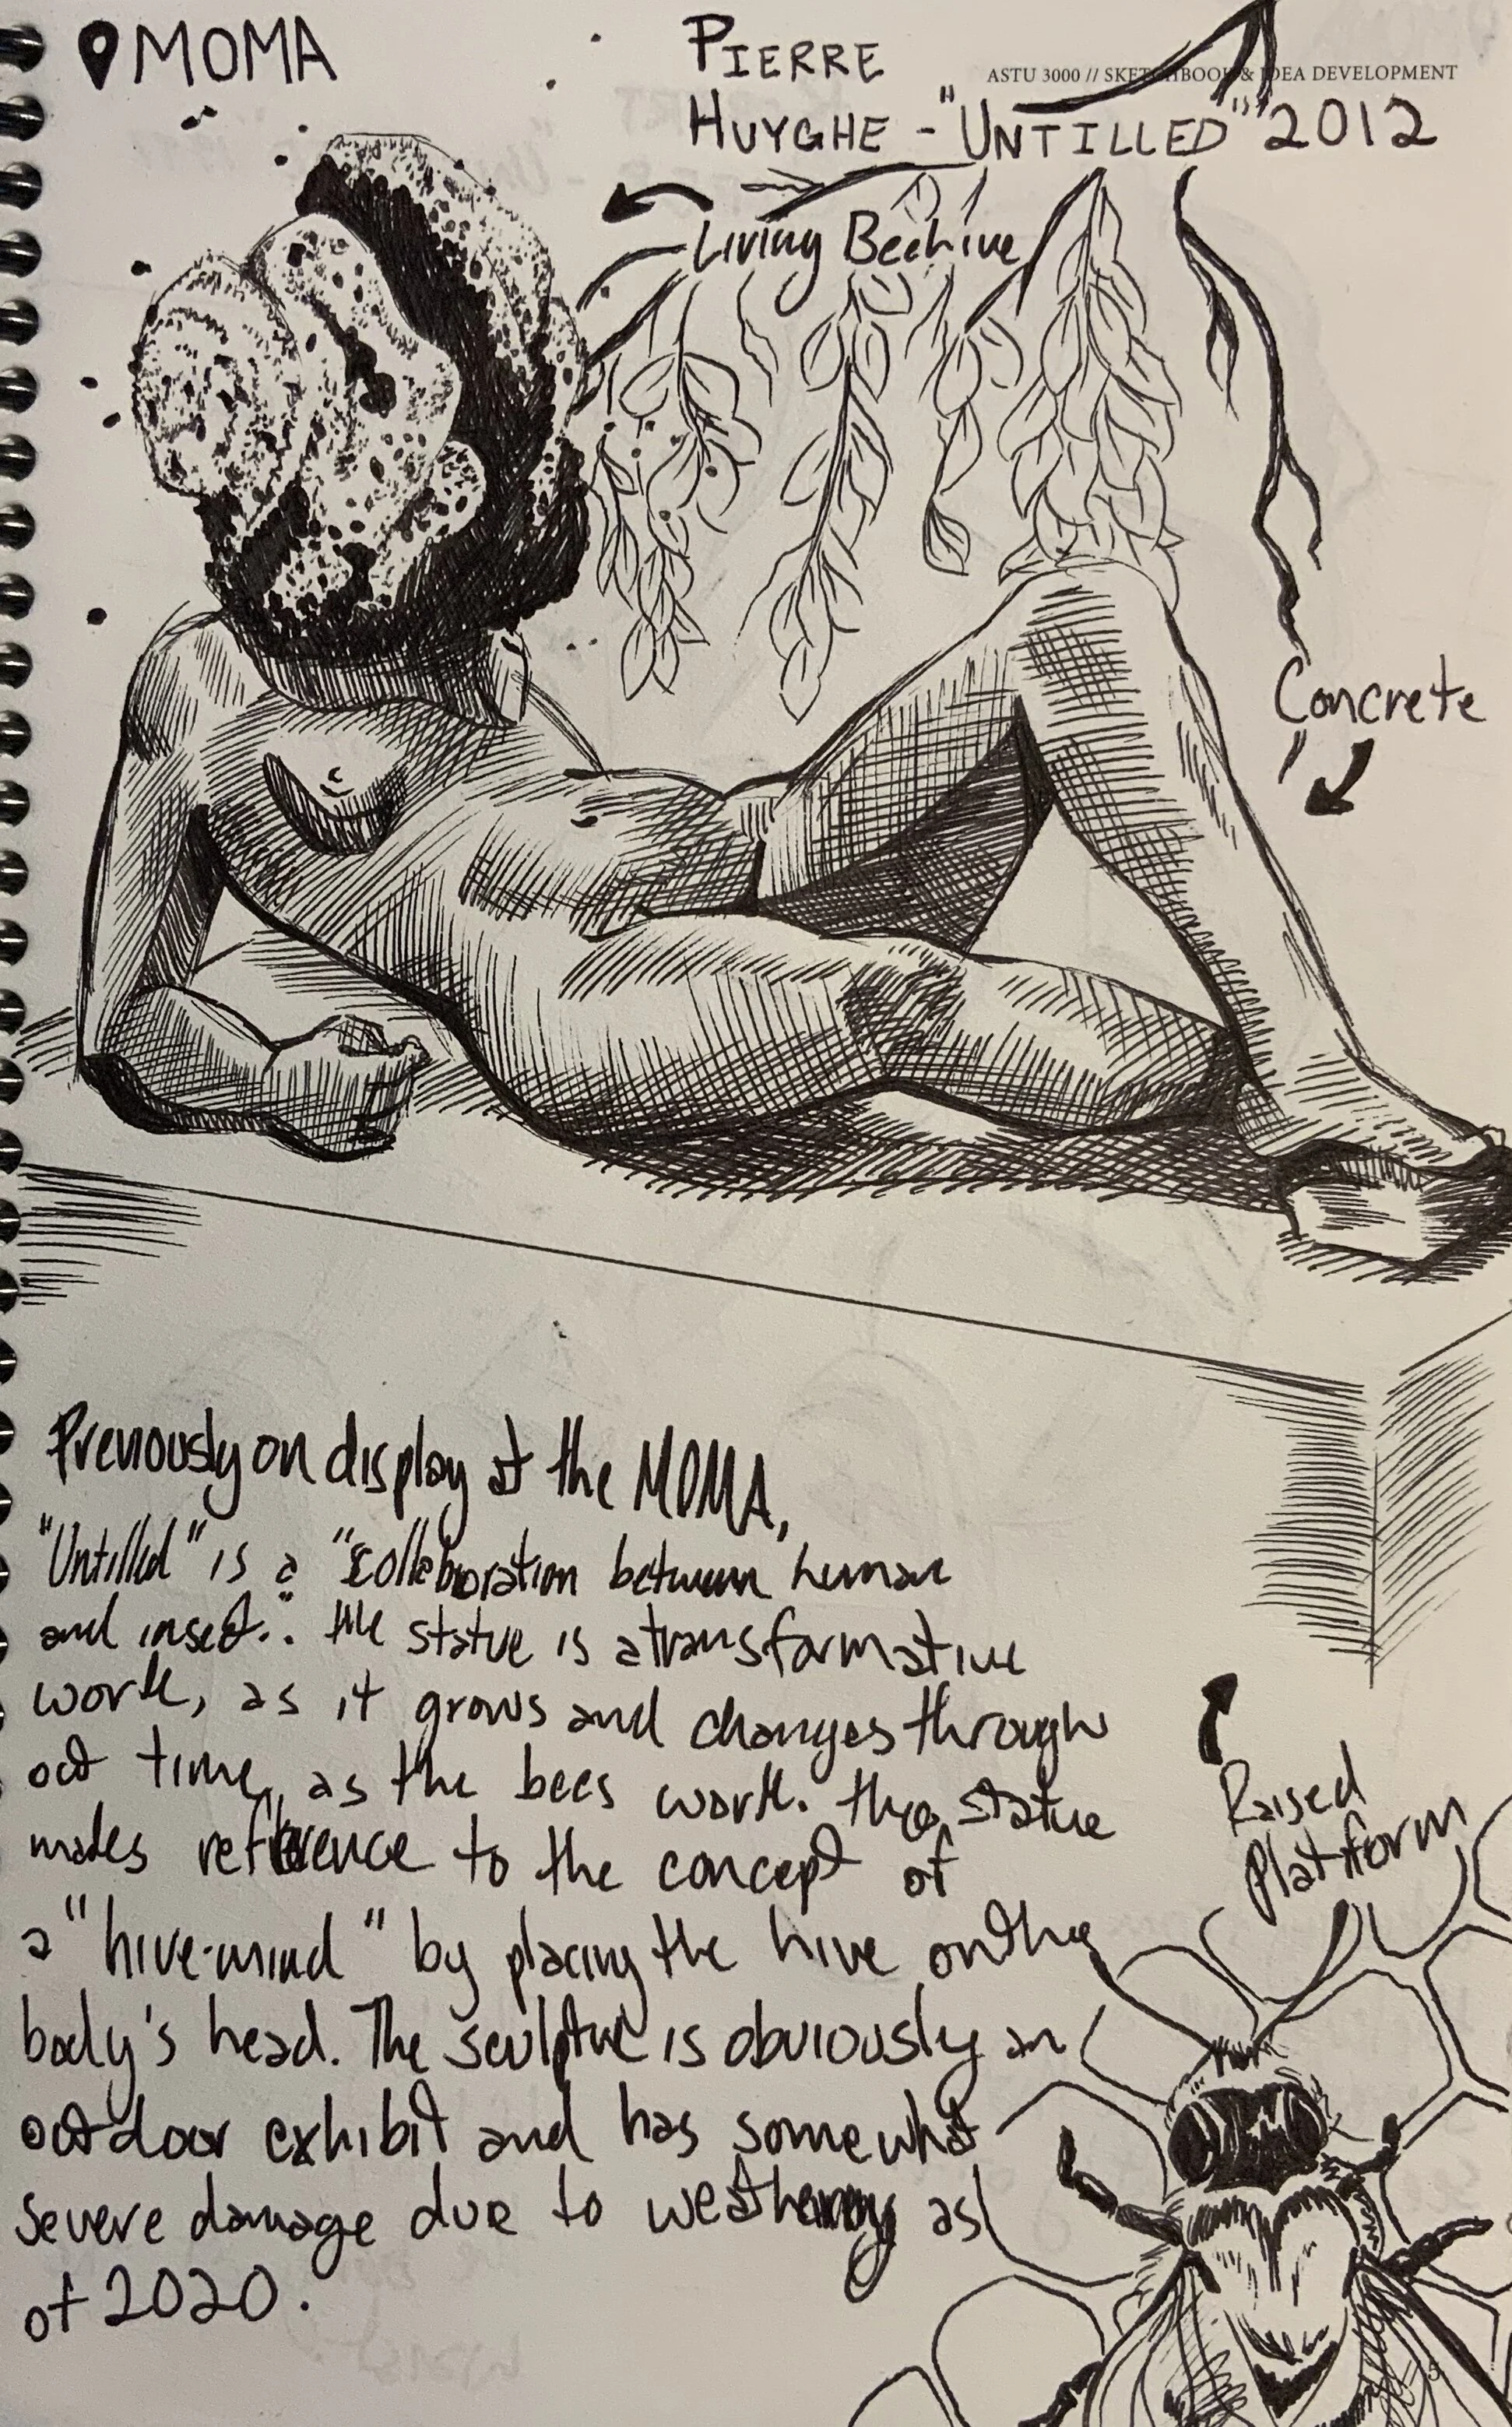 MOMA
PIERRE
HUYGHE - "UNTILLED" 2012
ASTU 3000 // SKETCHBOOK & IDEA DEVELOPMENT
Living Beehive
Concrete
Previously on display at the MOMA,
"Untilled" is a "collaboration between human
and insect." the statue is a transformative
work, as it grows and changes through
out time, as the bees work. the statue
makes reference to the concept of
a "hive-mind" by placing the hive on the
body's head. The sculpture is obviously an
outdoor exhibit and has somewhat
severe damage due to weathering as
of 2020.
Raised
Platform
5